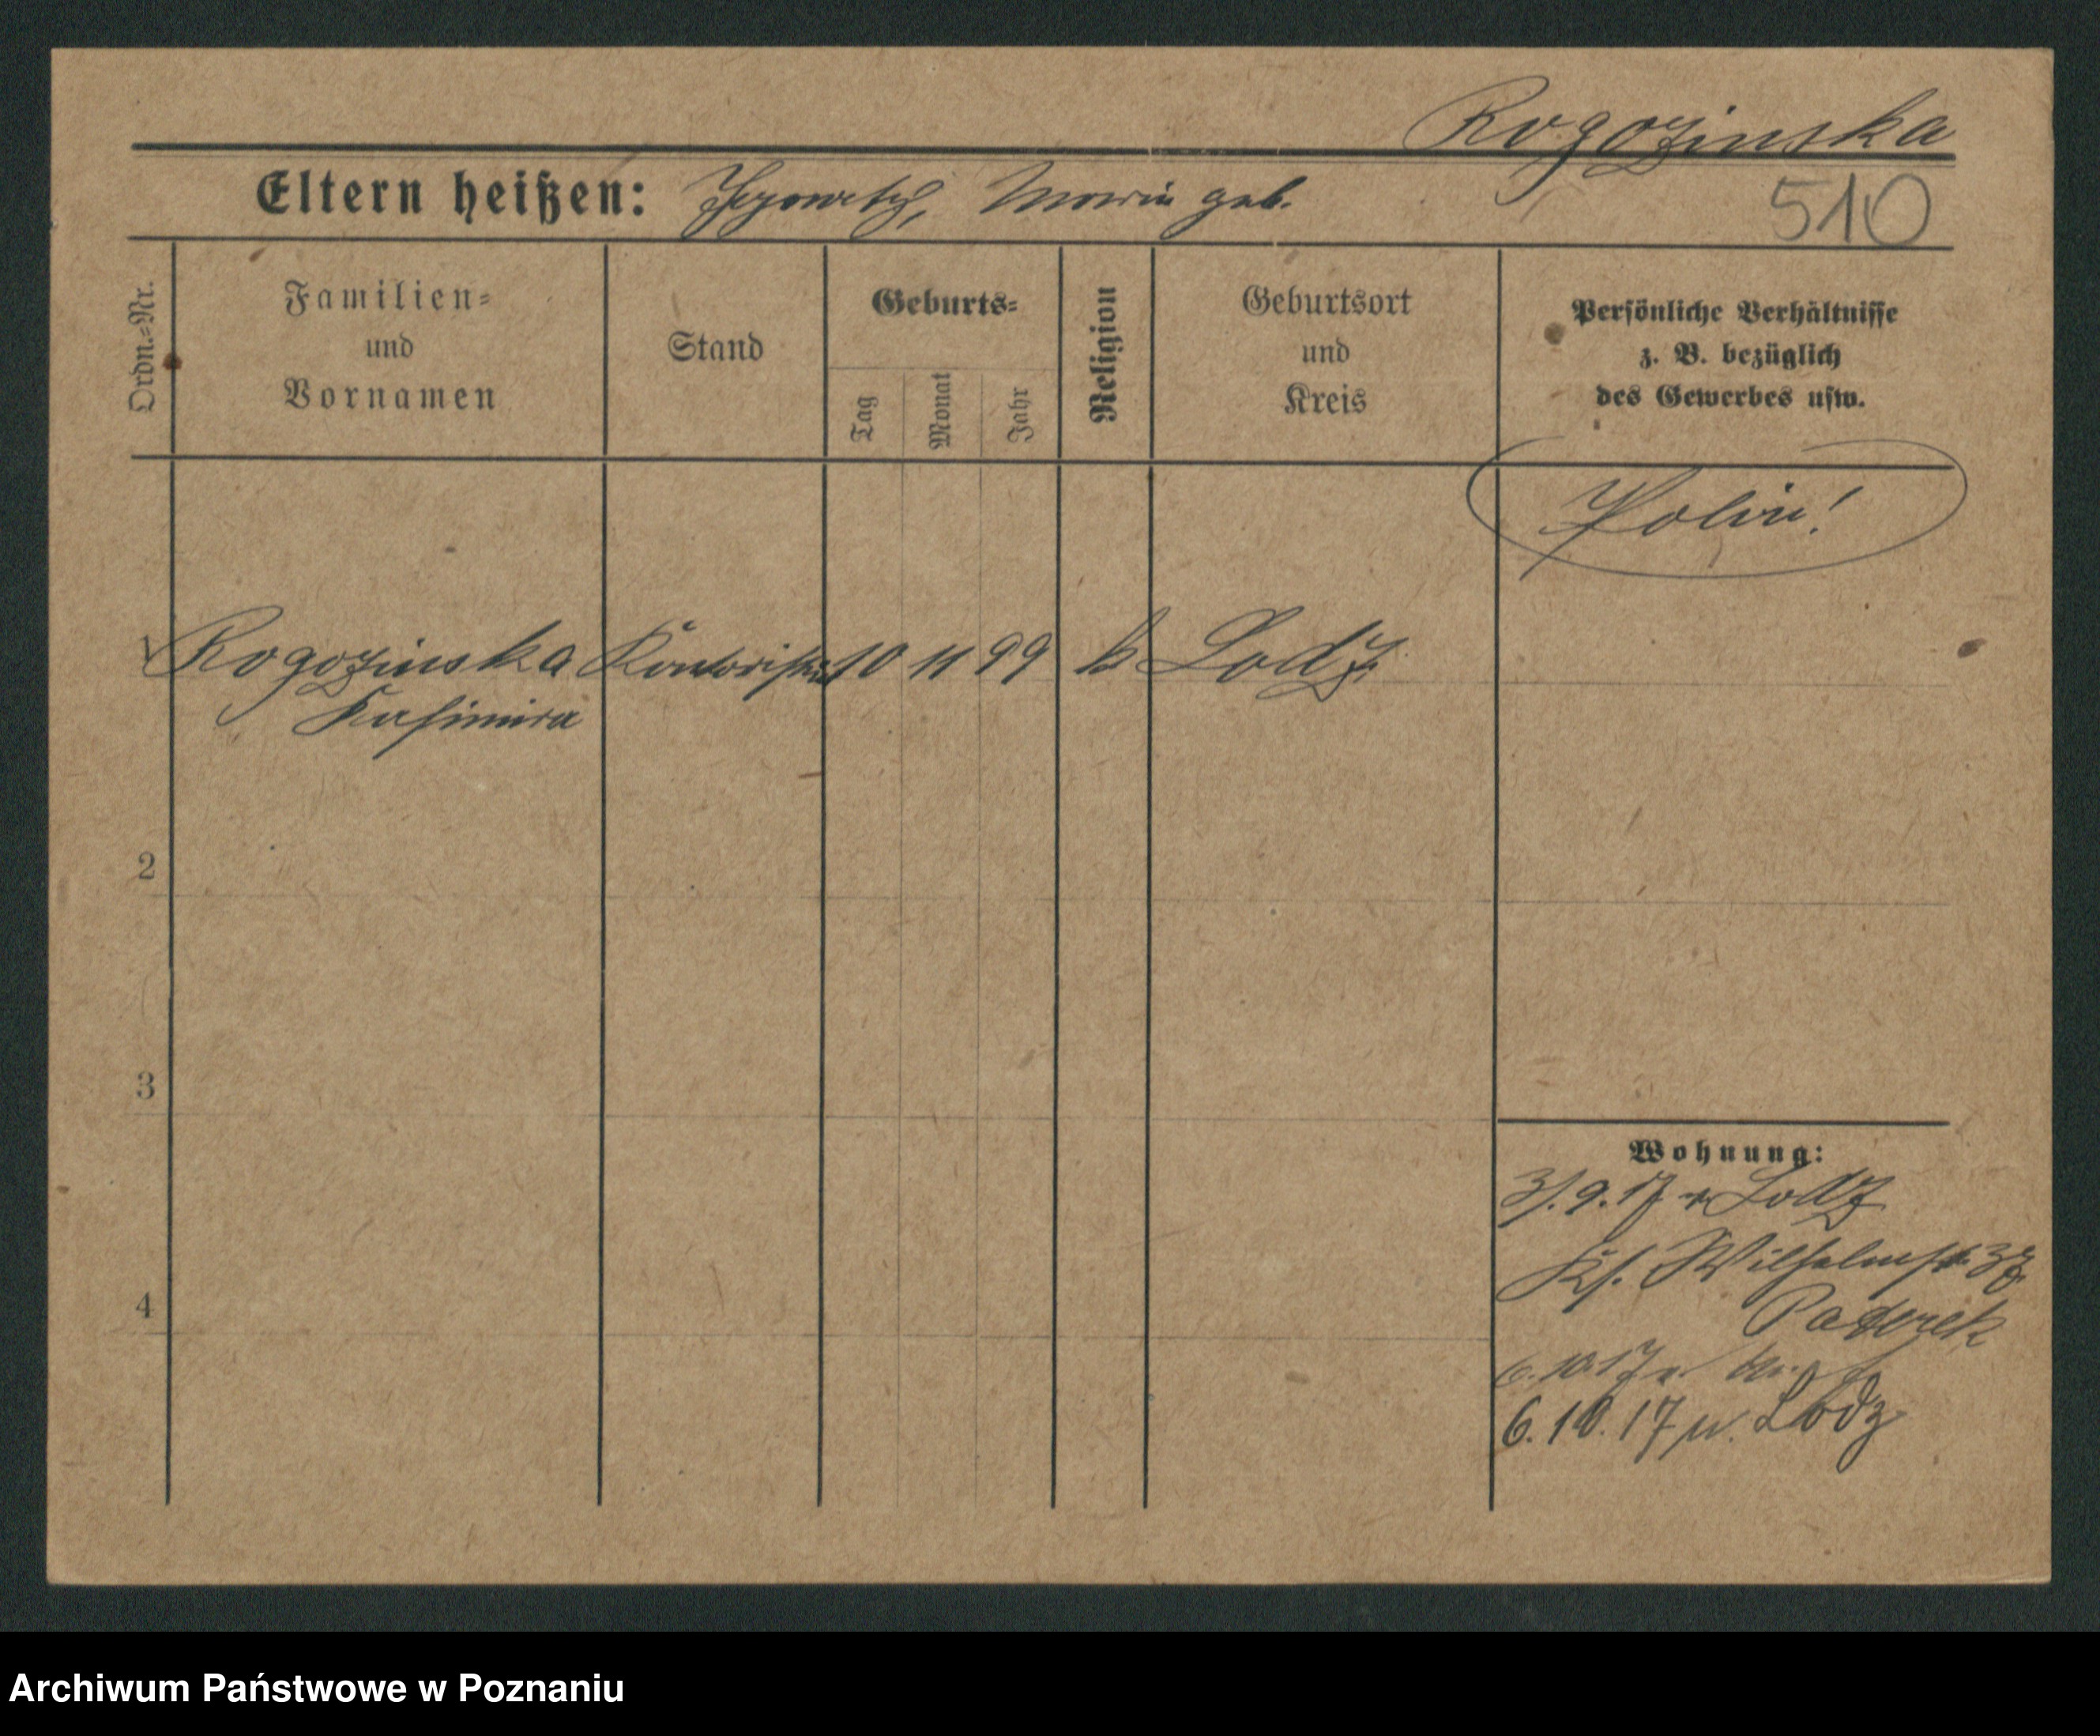 Rogozinska
Eltern heißen: Maria geb.
510
Ordn.-Nr.
Familien-
und
Vornamen
Stand
Geburts-
Tag
Monat
Jahr
Religion
Geburtsort
und
Kreis
Persönliche Verhältnisse
z. B. bezüglich
des Gewerbes usw.
Polin!
1 Rogozinska Kontoristin 10 11 99 k Lodz
Kasimira
2
3
4
Wohnung:
3/. 9. 17 v Lodz
Kl. Wilhelmstr.
6. 10. 17 n.
6. 10. 17 n. Lodz
Archiwum Państwowe w Poznaniu